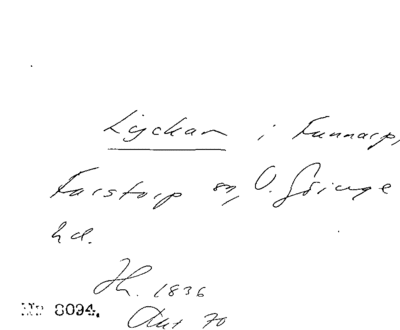 Lyckan i Funnarp,
Farstorp sn, V. Göinge
hd.
Jh. 1836
Akt 70
Nr 8094.